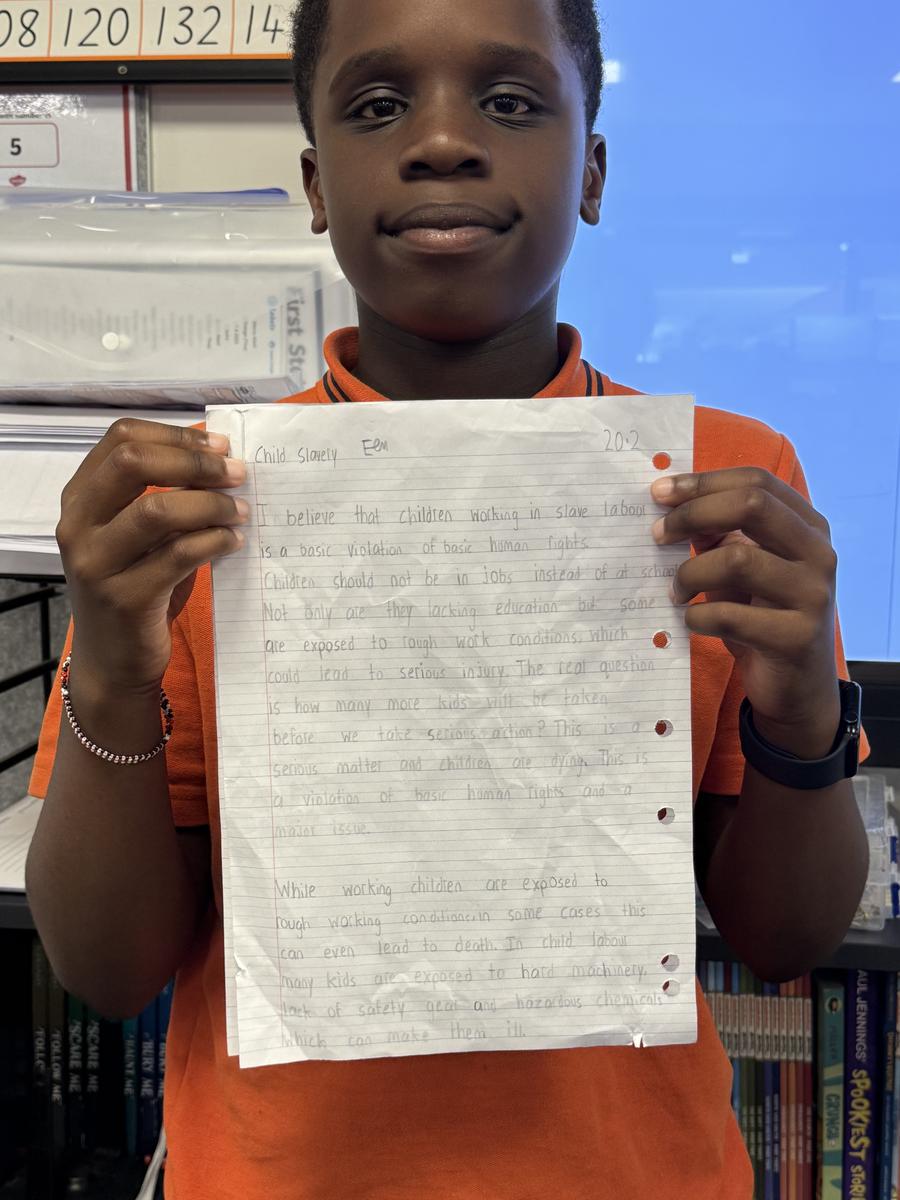 08 120 132 14
5
First St
Child Slavely 20.2
I believe that children working in slave labour
is a basic violation of basic human rights.
Children should not be in jobs instead of at school
Not only are they lacking education but some
are exposed to rough work conditions. which
could lead to serious injury. The real question
is how many more kids will be taken
before we take serious action? This is a
serious matter and children are dying. This is
a violation of basic human rights and a
major issue.
While working children are exposed to
rough working conditions.in some cases this
can even lead to death. In child labour
many kids are exposed to hard machinery,
lack of safety gear and hazardous chemicals
which can make them ill.
FOLLOW ME
SCARE ME
BURY ME
AUL JENNINGS'
SPOOKIEST STORI